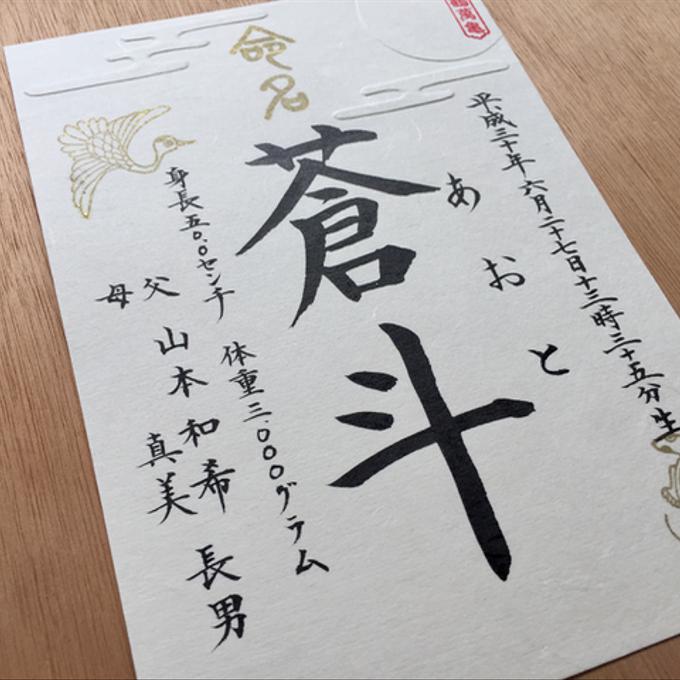 命名
平成三十年六月二十七日十三時三十五分生
あおと
蒼斗
身長五〇.〇センチ 体重三.〇〇〇グラム
父 山本和希 長男
母 真美